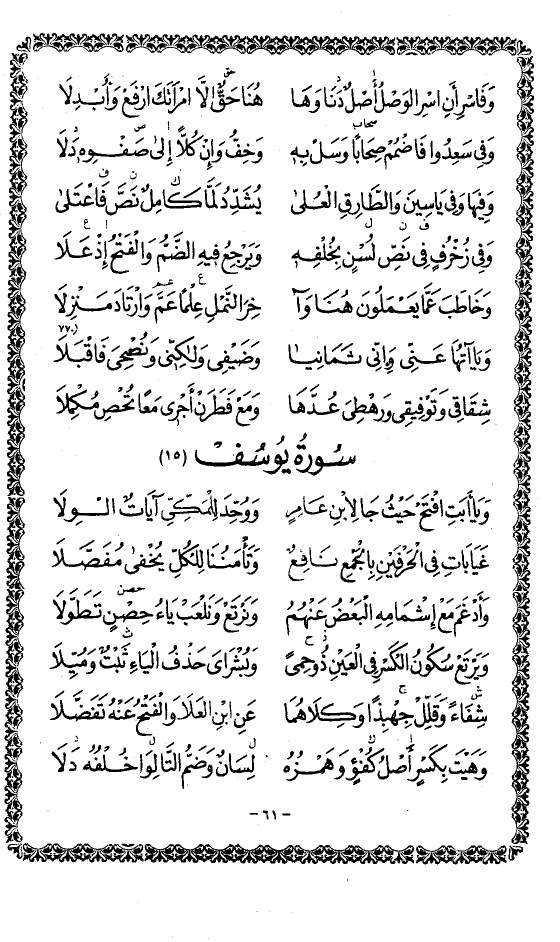 وَفَاسْرِ أَنِ اسْرِ الْوَصْلُ أَصْلٌ دَنَا وَهَا هُنَا حَقٌّ إِلَّا امْرَأَتَكَ ارْفَعْ وَأَبْدِلَا
وَفِي سَعِدُوا فَاضْمُمْ صِحَابًا وَسَلْ بِهِ وَخِفُّ وَإِنْ كُلًّا إِلَى صَفْوِهِ دَلَا
وَفِيهَا وَفِي يَاسِينَ وَالطَّارِقِ الْعُلَى يُشَدِّدُ لَمَّا كَامِلٌ نَصَّ فَاعْتَلَى
وَفِي زُخْرُفٍ فِي نَصِّ لُسْنٍ بِخُلْفِهِ وَيَرْجِعُ فِيهِ الضَّمُّ وَالْفَتْحُ إِذْ عَلَا
وَخَاطَبَ عَمَّا يَعْمَلُونَ هُنَا وَآ خِرَ النَّمْلِ عِلْمًا عَمَّ وَارْتَادَ مَنْزِلَا
وَيَاآتُهَا عَنِّي وَإِنِّي ثَمَانِيَا وَضَيْفِي وَلَكِنِّي وَنُصْحِيَ فَاقْبَلَا (٧٧٠
شِقَاقِي وَتَوْفِيقِي وَرَهْطِيَ عُدَّهَا وَمَعْ فَطَرَنْ أَجْرِي مَعًا تُحْصِ مُكْمِلَا
سورة يوسف (١٥)
وَيَا أَبَتِ افْتَحْ حَيْثُ جَا لِابْنِ عَامِرٍ وَوُحِّدَ لِلْمَكِّيِّ آيَاتٌ الْوِلَا
غَيَابَاتِ فِي الْحَرْفَيْنِ بِالْجَمْعِ نَافِعٌ وَتَأْمَنُنَا لِلْكُلِّ يُخْفَى مُفَصَّلَا
وَأَدْغَمَ مَعْ إِشْمَامِهِ الْبَعْضُ عَنْهُمُ وَنَرْتَعْ وَنَلْعَبْ يَاءُ حِصْنٍ تَطَوَّلَا
وَيَرْتَعْ سُكُونُ الْكَسْرِ فِي الْعَيْنِ ذُو حِمًى وَبُشْرَايَ حَذْفُ الْيَاءِ ثَبْتٌ وَمُيِّلَا
شِفَاءً وَقَلِّلْ جِهْبِذًا وَكِلَاهُمَا عَنِ ابْنِ الْعَلَا وَالْفَتْحُ عَنْهُ تَفَضَّلَا
وَهَيْتَ بِكَسْرٍ أَصْلُ كُفْؤٍ وَهَمْزُهُ لِسَانٌ وَضَمُّ التَّا لِوَا خُلْفُهُ دَلَا
- ٦١ -